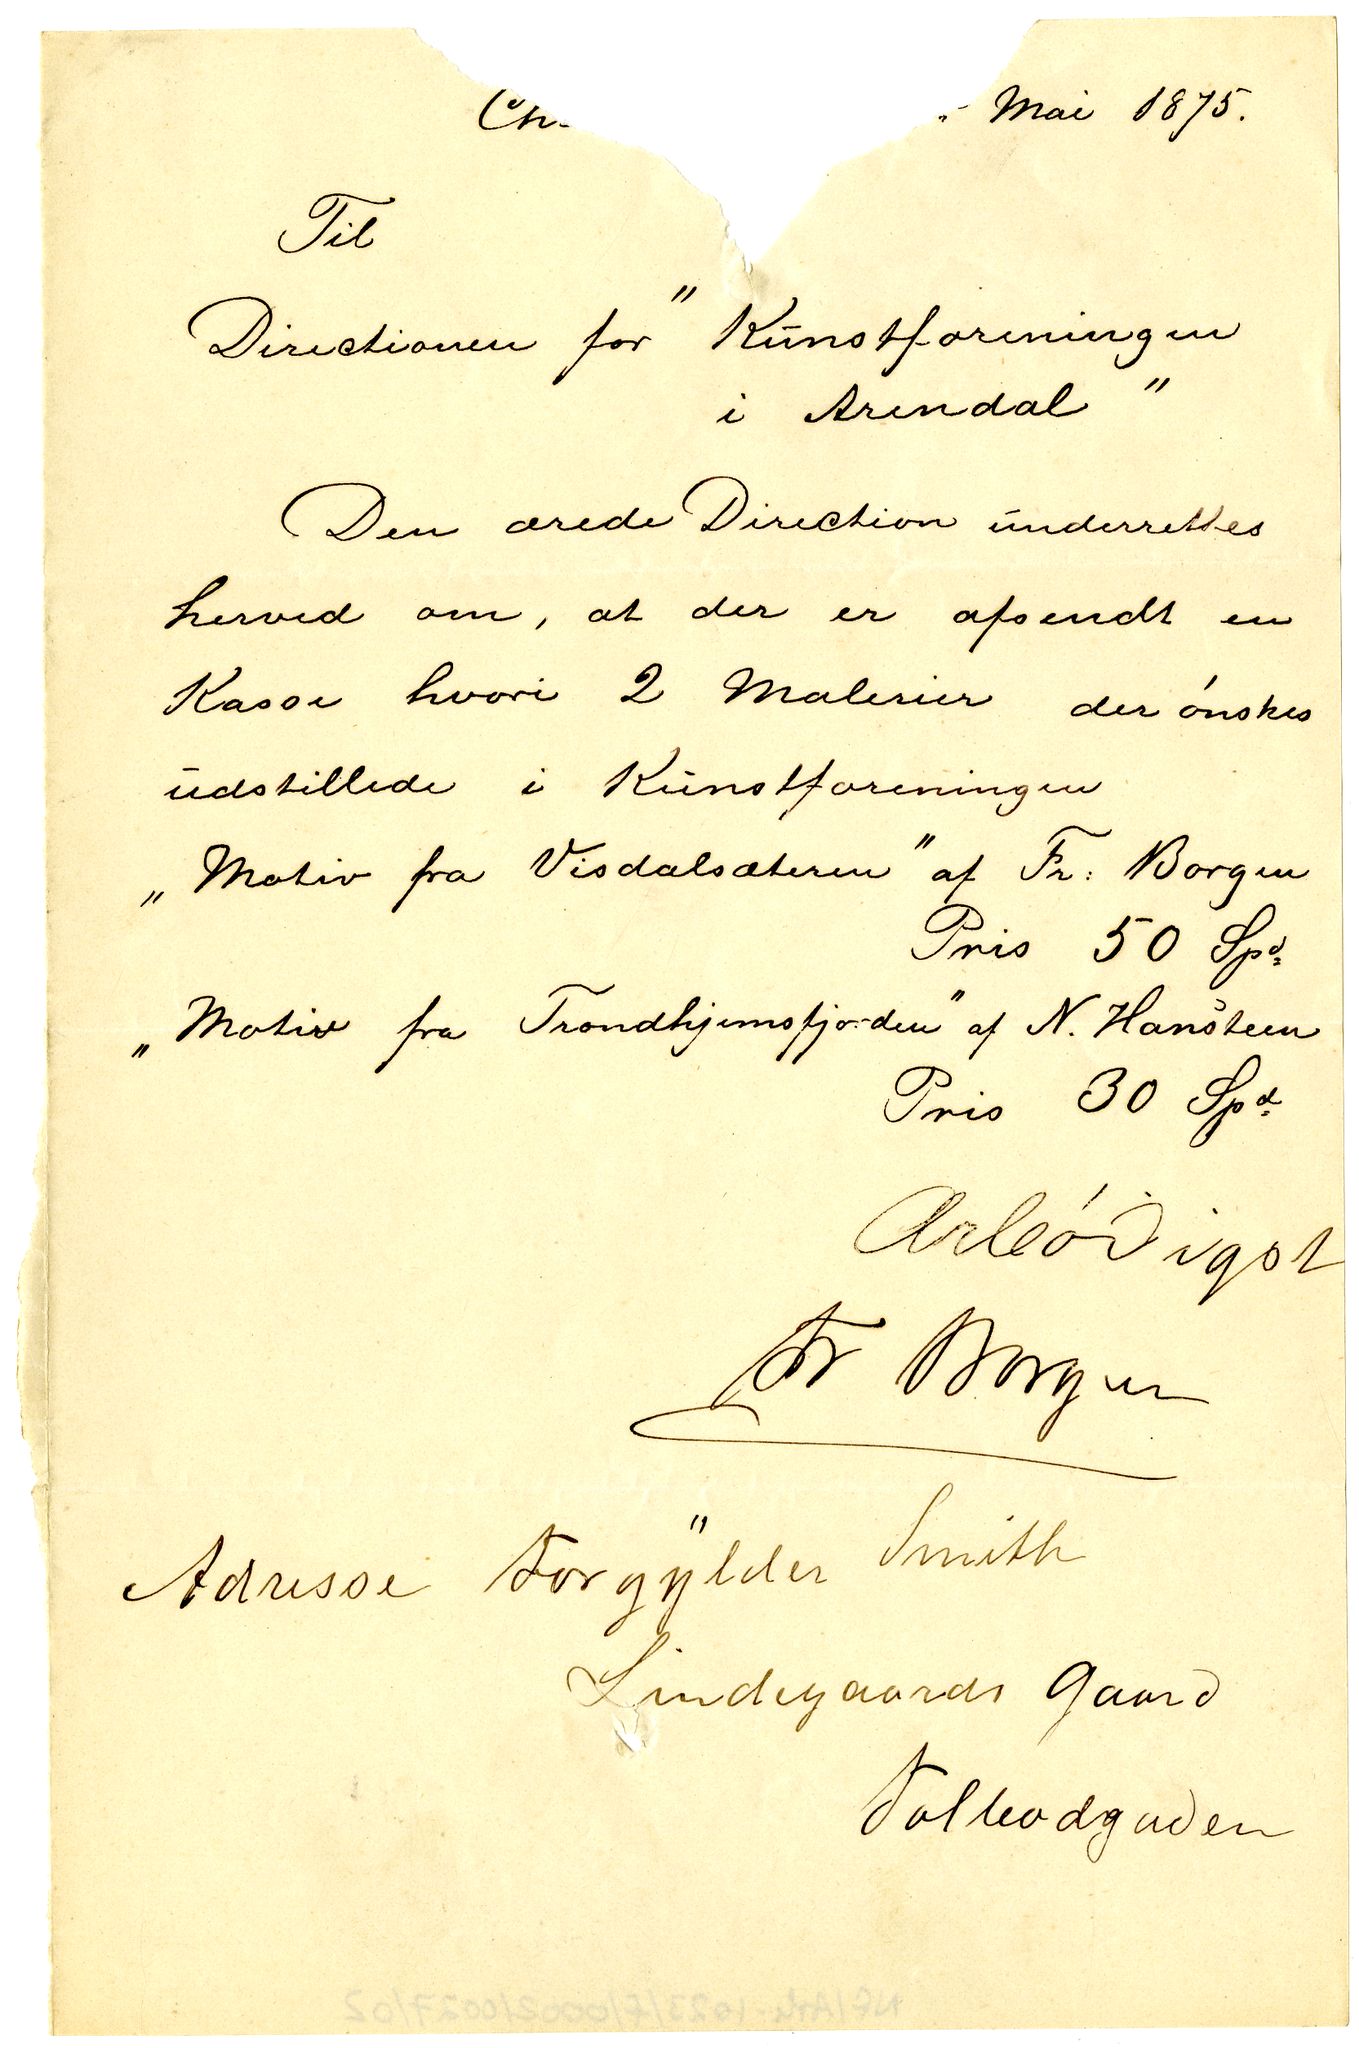 Ch Mai 1875.
Til
Directionen for "Kunstforeningen
i Arendal"
Den ærede Direction underrettes
herved om, at der er afsendt en
Kasse hvori 2 Malerier der ónskes
udstillede i Kunstforeningen
„Motiv fra Visdalsæteren" af Fr: Borgen
Pris 50 Spd
„Motiv fra Trondhjemsfjorden" af N. Hansteen
Pris 30 Spd
Ærbódigst
Fr Borgen
Adresse Forgylder Smith
Lindegaards Gaard
Tolbodgaden
NF/Ark-1023/F/0002/0027/02